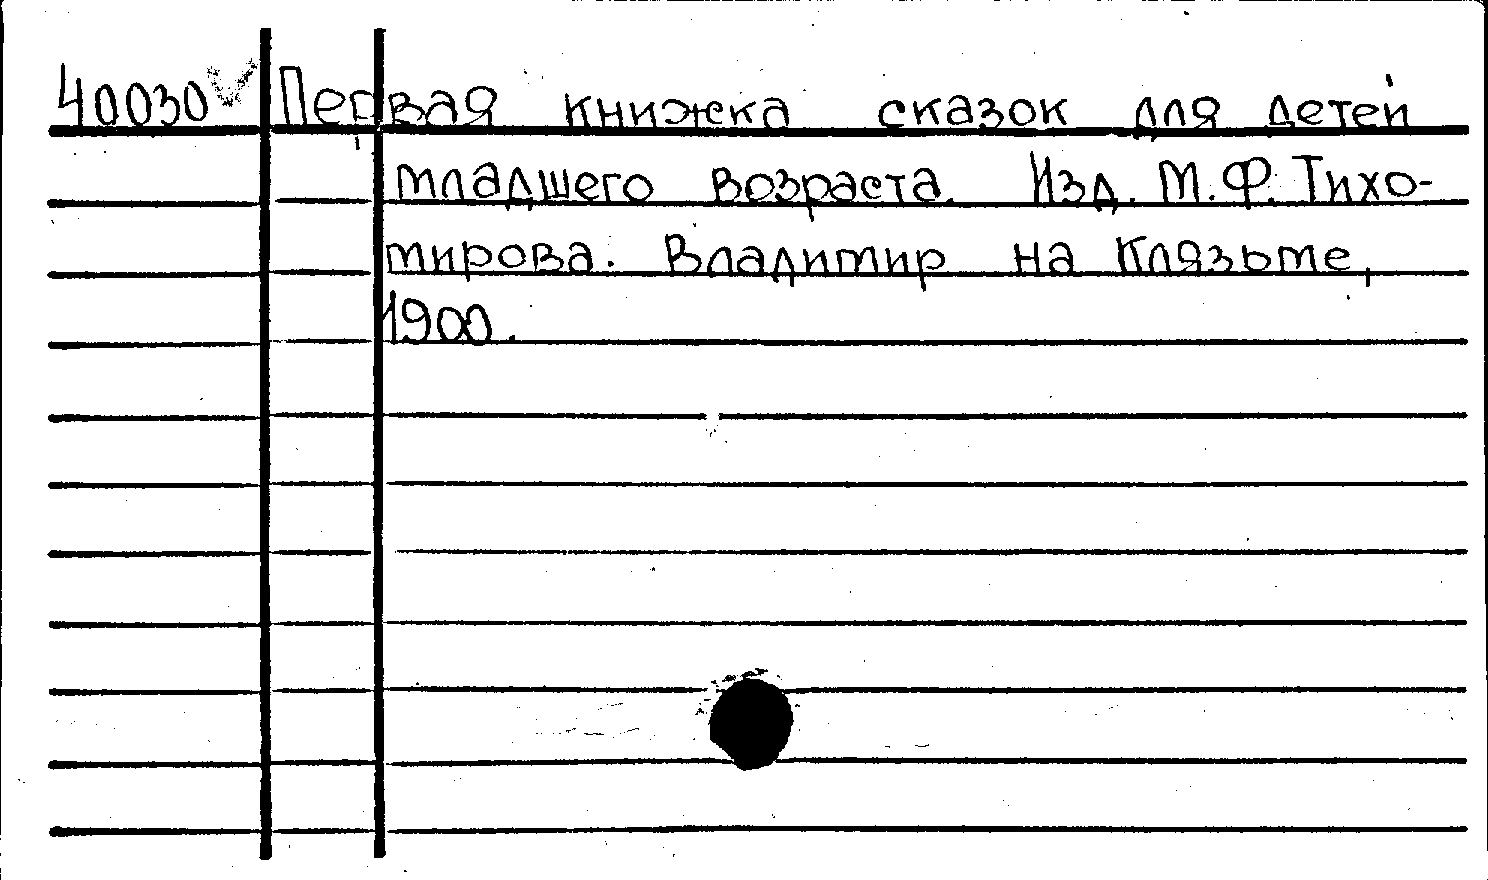 40030 Первая книжка сказок для детей
младшего возраста. Изд. М.Ф. Тихо-
мирова. Владимир на Клязьме,
1900.